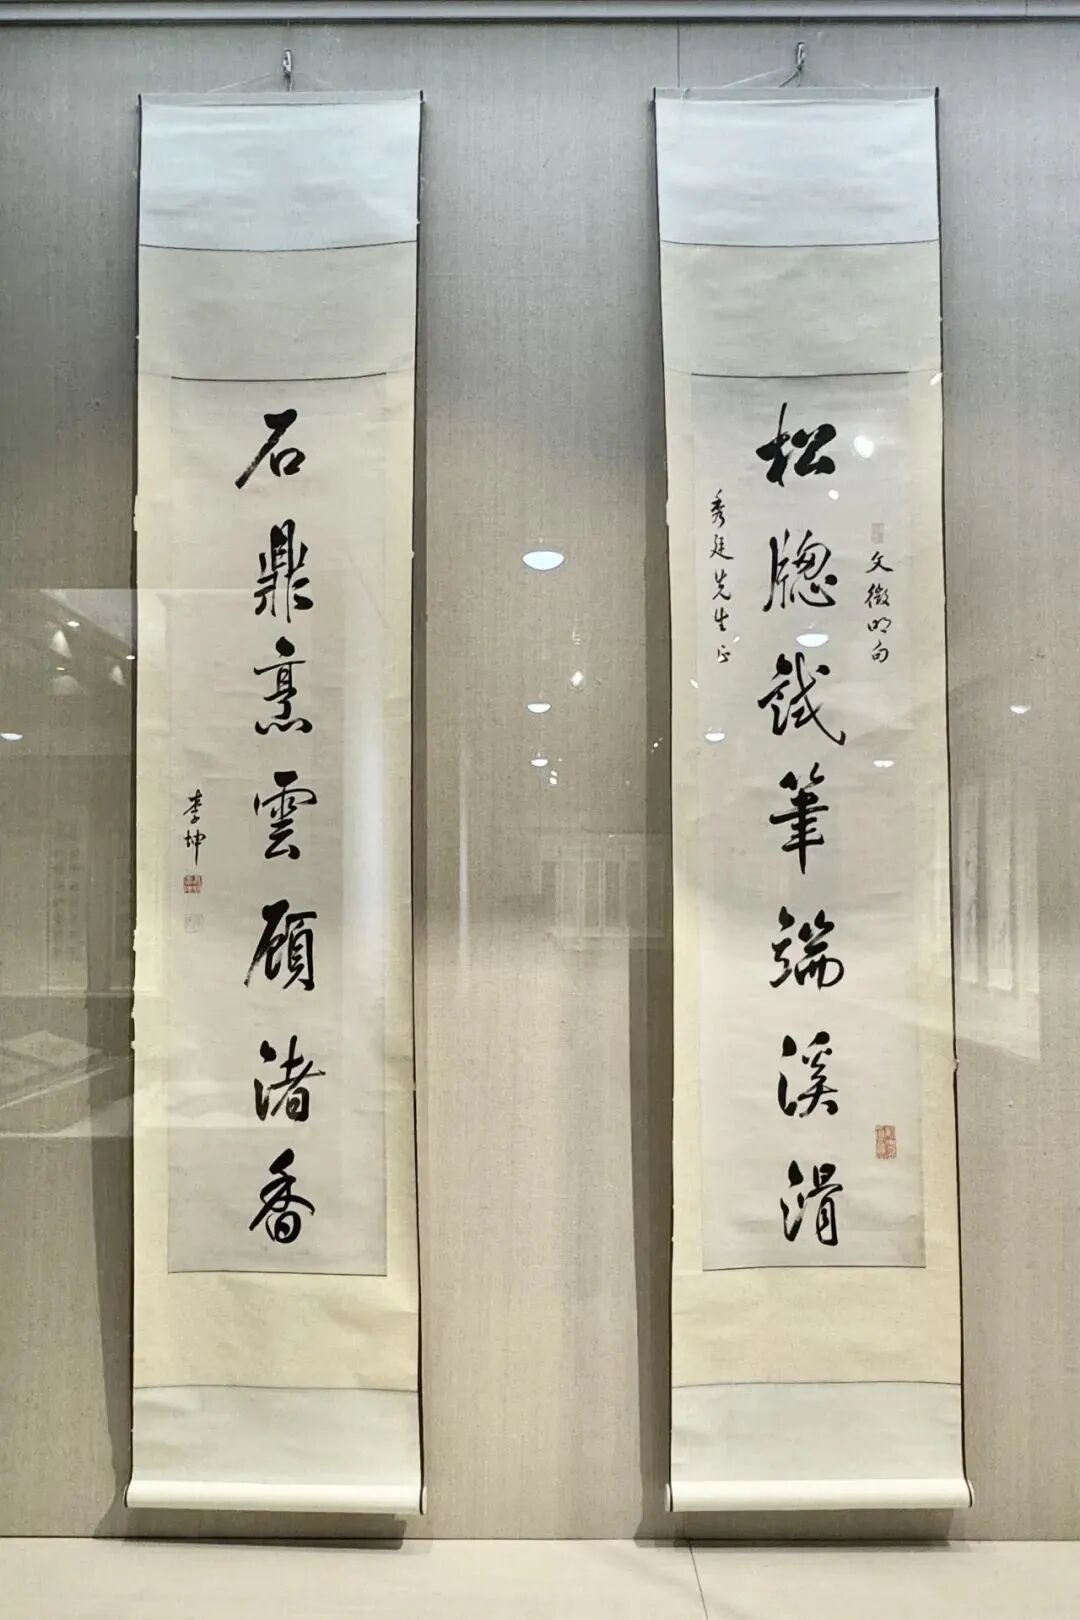 文徵明句
松牕試筆端溪滑
秀廷先生正
石鼎烹雲顧渚香
李坤